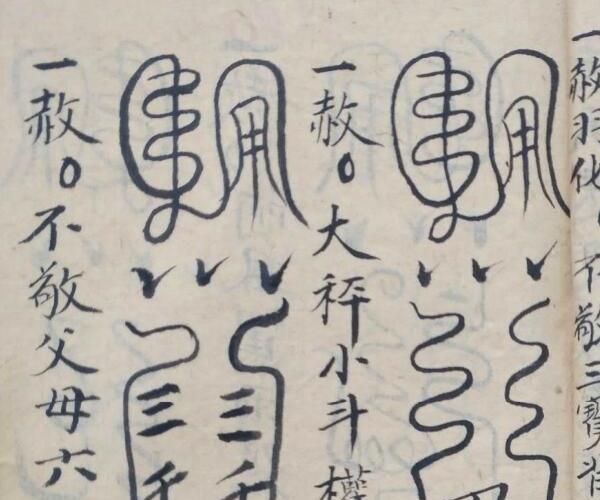 一赦羽化不敬三寶
一赦。大秤小斗權
三三
一赦。不敬父母六